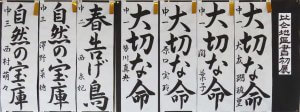 比企地区書初展
大切な命
中一
大切な命
中一 関 菜子
大切な命
中二
大切な命
中二
春告げ鳥
中三 西
自然の宝庫
中三 澤野 菜穂
自然の宝庫
中三 西村 萌々